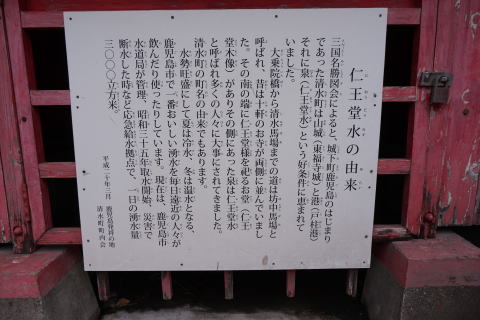 仁王堂水の由来
三国名勝図会によると、城下町鹿児島のはじまり
であった清水町は山城(東福寺城)と港(戸柱港)
それに泉(仁王堂水)という好条件に恵まれて
いました。
大乗院橋から清水馬場までの道は坊中馬場と
呼ばれ、昔は十軒のお寺が両側に並んでいまし
た。その南の端に仁王堂様を祀るお堂(仁王
堂木像)がありその側にあった泉は仁王堂水
と呼ばれ多くの人々に大事にされてきました。
清水町の町名の由来でもあります。
水勢旺盛にして夏は冷水、冬は温水となる、
鹿児島市で一番おいしい湧水を毎日遠近の人々が
飲んだり使ったりしています。現在は、鹿児島市
水道局が管理、昭和三十五年取水開始、災害で
断水した時など応急給水拠点で、一日の湧水量
三〇〇〇立方米。
平成二十年三月 鹿児島発祥の地
清水町町内会